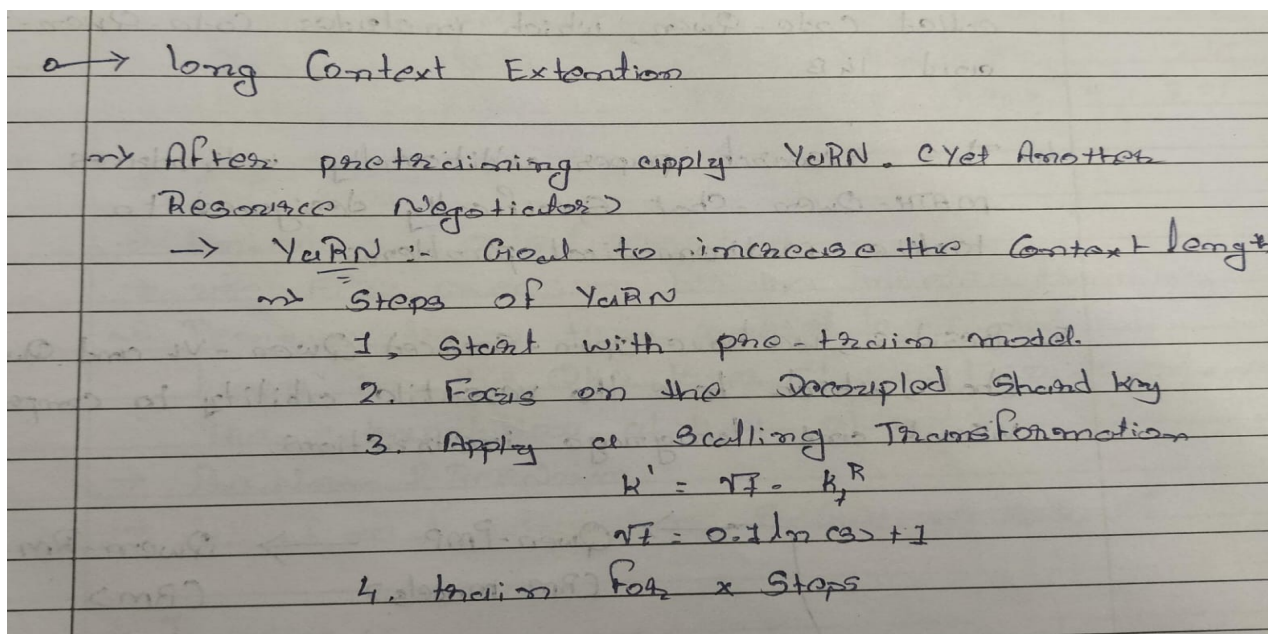 → long Context Extention
⇒ After pretraining apply YaRN. (Yet Another
Resource Negotiator)
→ YaRN :- Goal to increase the Context lengt
⇒ Steps of YaRN
1, Start with pre-train model.
2. Focus on the Decoupled Shard key
3. Apply a Scalling Transformation
k' = √t . k_t^R
√t = 0.1 ln (s) + 1
4. train for x Steps